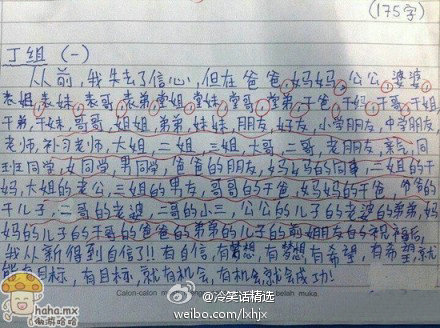 (175字)
丁组 (一)
从前,我失去了信心,但在爸爸,妈妈,公公,婆婆
表姐,表妹,表哥,表弟,堂姐,堂妹,堂哥,堂弟,干爸,干妈,干哥,干姐
干弟,干妹,哥哥,姐姐,弟弟,妹妹,朋友,好友,小学朋友,中学朋友
老师,补习老师,大姐,二姐,三姐,大哥,二哥,老友,亲戚,同
班同学,女同学,男同学,爸爸的朋友,妈妈的同事,二姐的干
妈,大姐的老公,三姐的男友,哥哥的干爸,妈妈的干爸,爸爸的
干儿子,二哥的老婆,二哥的小三,公公的儿子的老婆的弟弟,妈
妈的儿子的干爸的爸爸的弟弟的儿子的前姐朋友的祝福后,
我从新得到自信了!!有自信,有梦想,有梦想,有希望,有希望,就
有目标,有目标,就有机会,有机会就会成功!
haha.mx
傲游哈哈
Calon-calon
muka
@冷笑话精选
weibo.com/lxhjx